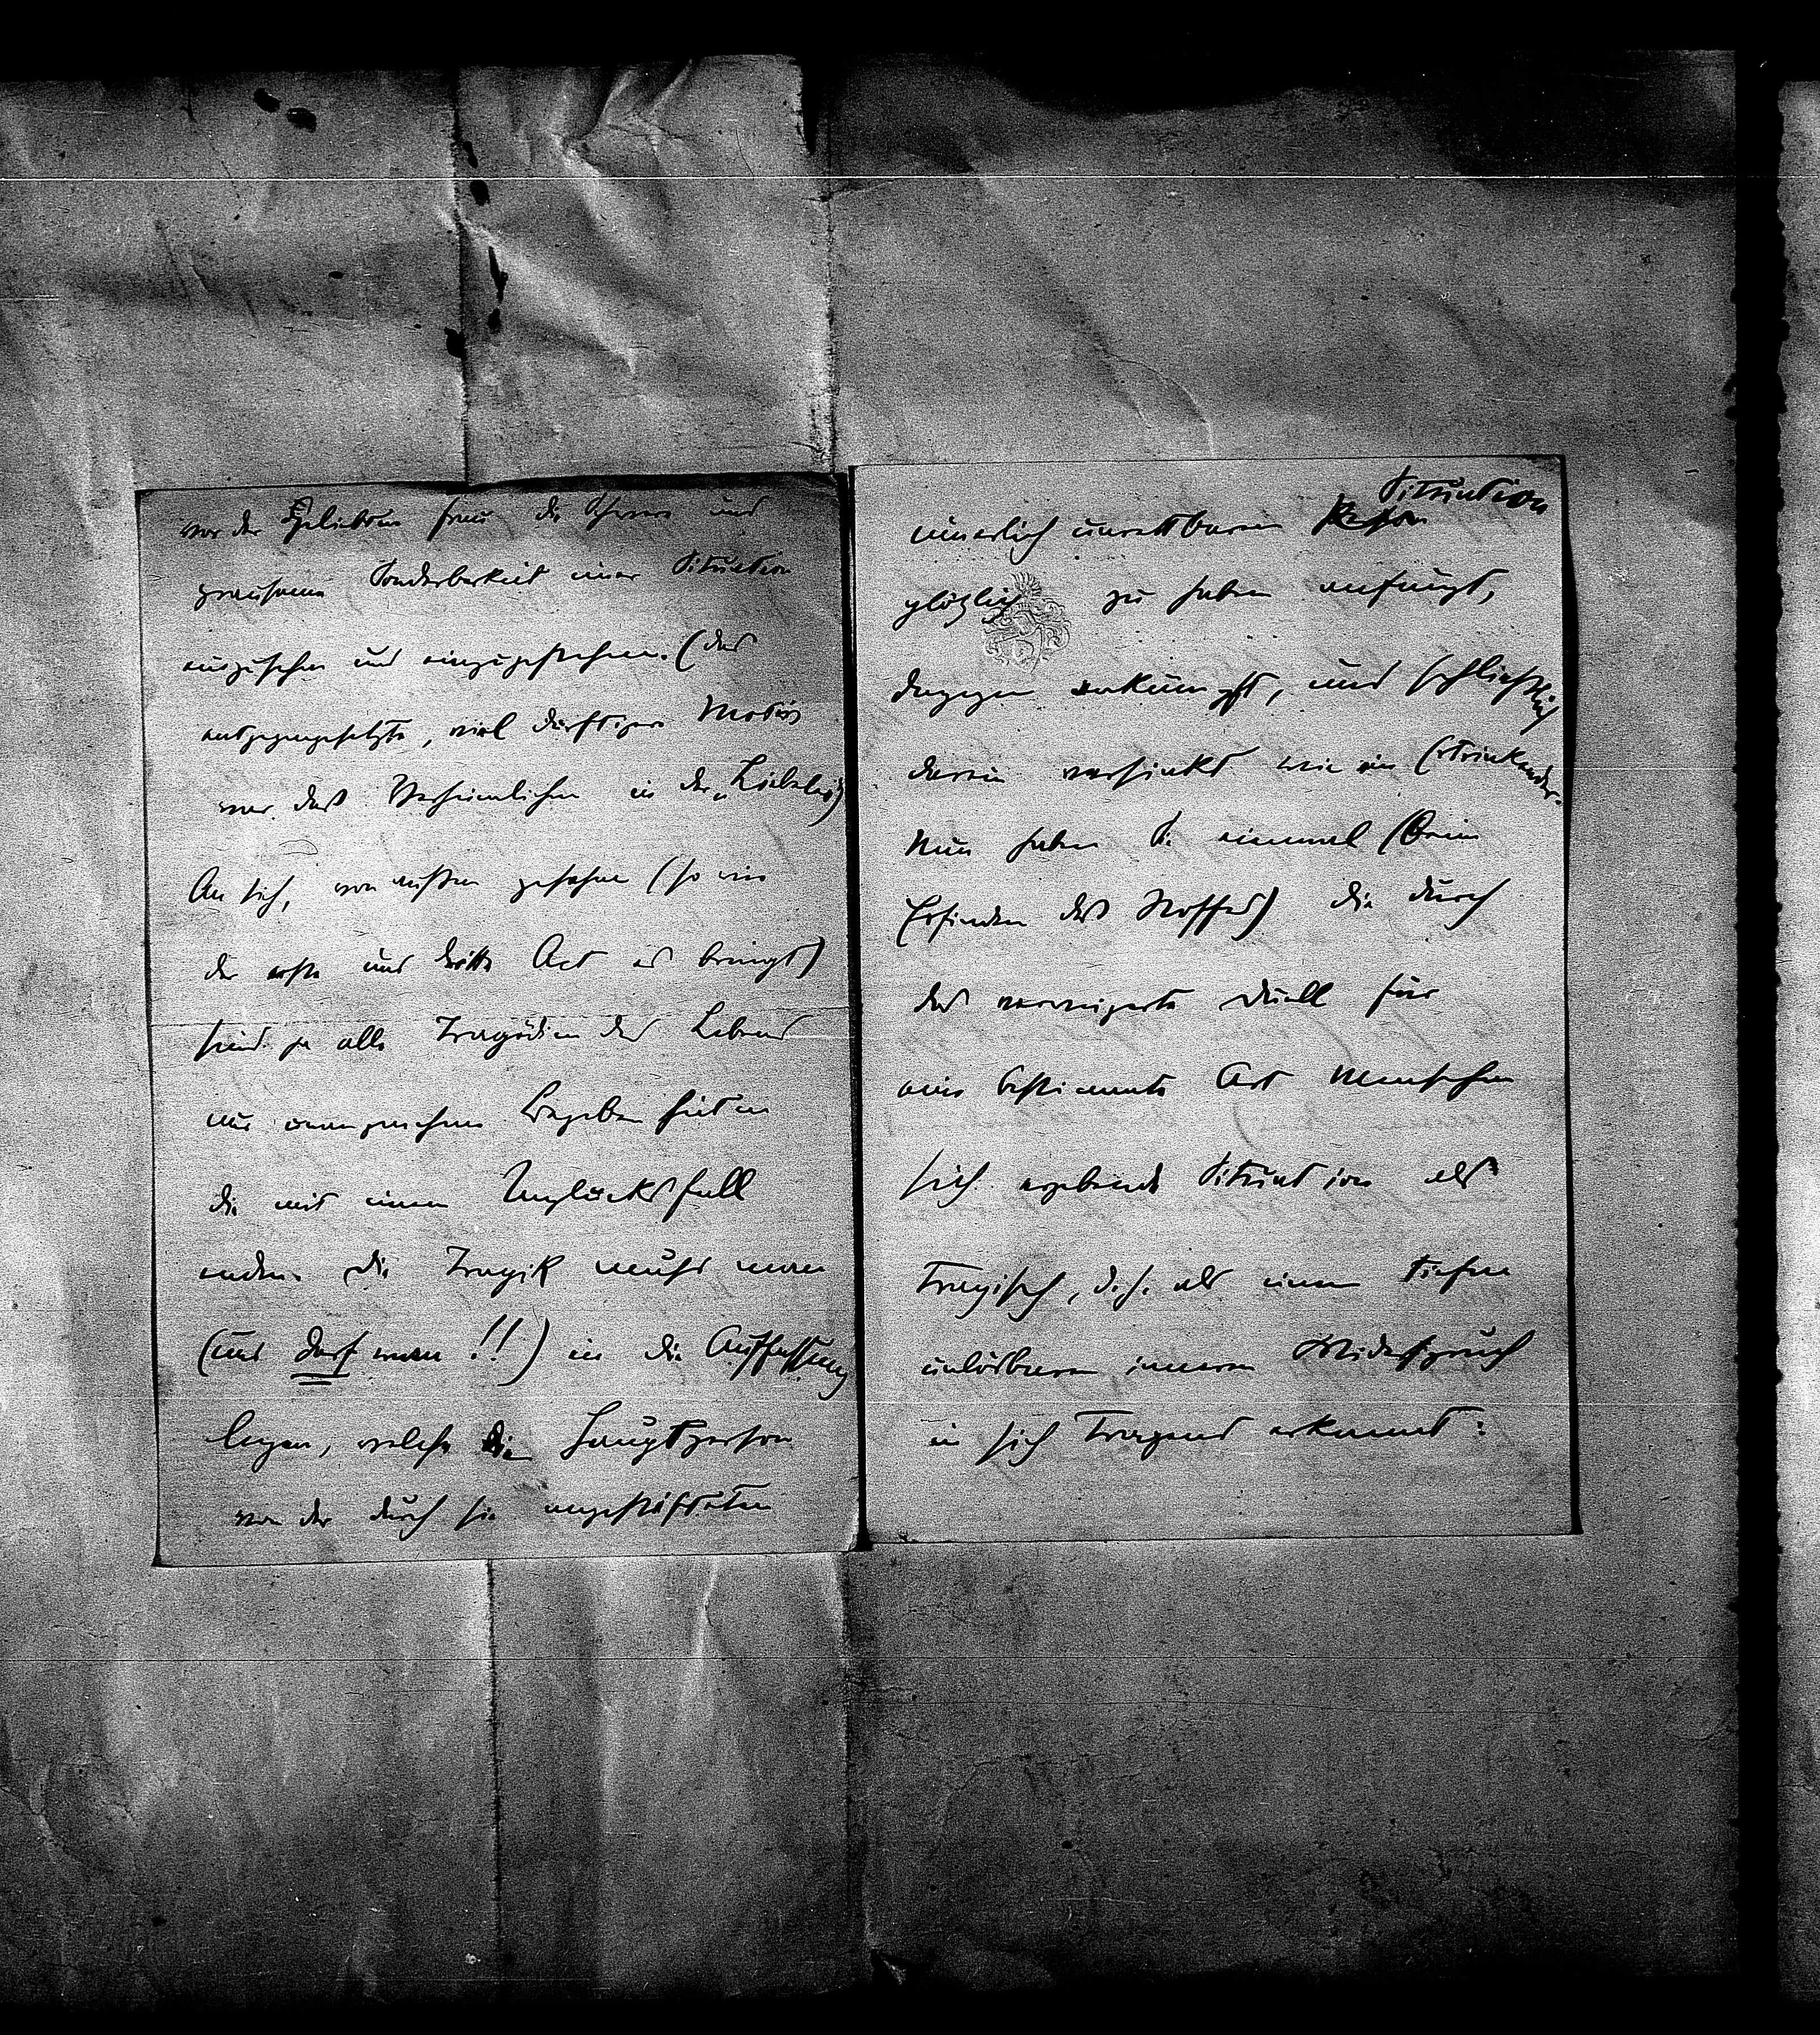 vor der geliebten Frau die Schwere und
grausame Sonderbarkeit einer Situation
einzusehen und einzugestehen. (das
entgegengesetzte, viel dürftigere Motiv
war das Verheimlichen in der „Liebelei“)
An sich, von außen gesehen (so wie
der erste und dritte Act es bringt)
sind ja alle Tragödien des Lebens
nur unangenehme Begebenheiten
die mit einem Unglücksfall
enden. Die Tragik muss man
(und darf man!!) in die Auffassung
legen, welche die Hauptperson
von der durch sie angestifteten
innerlich unrettbaren Situation
plötzlich zu haben anfängt,
dagegen ankämpft, und schließlich
darin versinkt wie ein Ertrinkender.
Nun haben Sie einmal (beim
Erfinden des Stoffes) die durch
das verweigerte Duell für
eine bestimmte Art Menschen
sich ergebende Situation als
Tragisch, d. h. als einen tiefen
unlösbaren inneren Widerspruch
in sich Tragend erkannt: